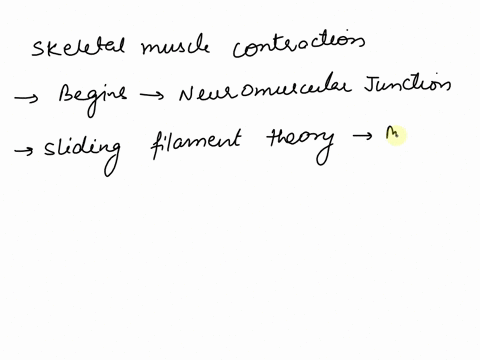 Skeletal muscle contraction
→ Begins → Neuromuscular Junction
→ Sliding filament theory →